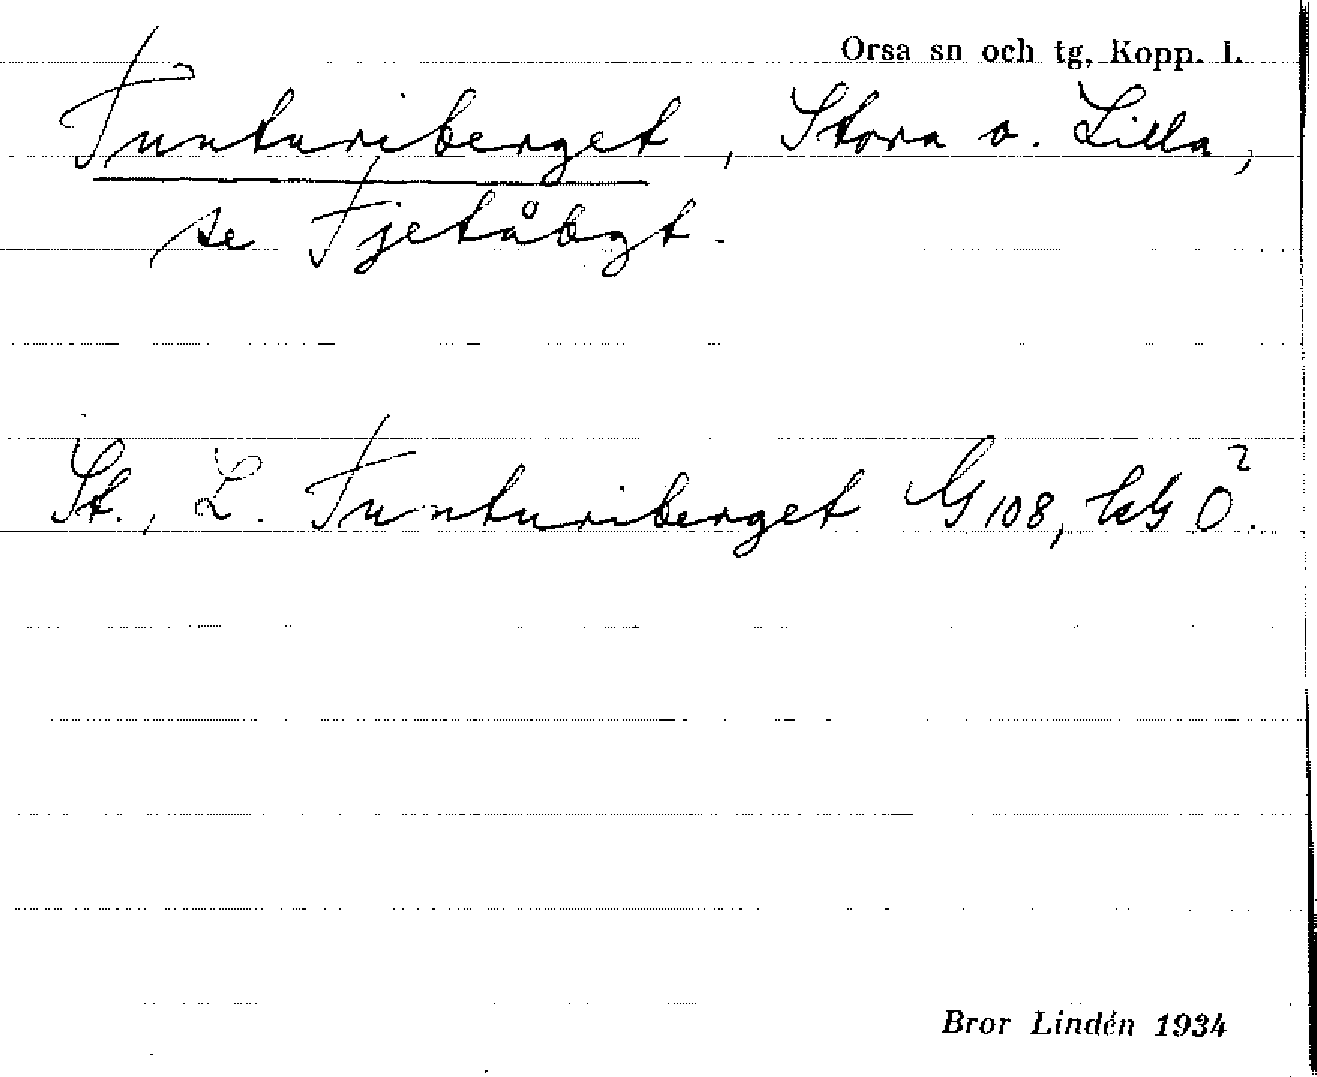 Orsa sn och tg, Kopp. l.
Tunturiberget, Stora o. Lilla,
se Fjetåbgt.
St., L. Tunturiberget G 108, kG Ö².
Bror Lindén 1934